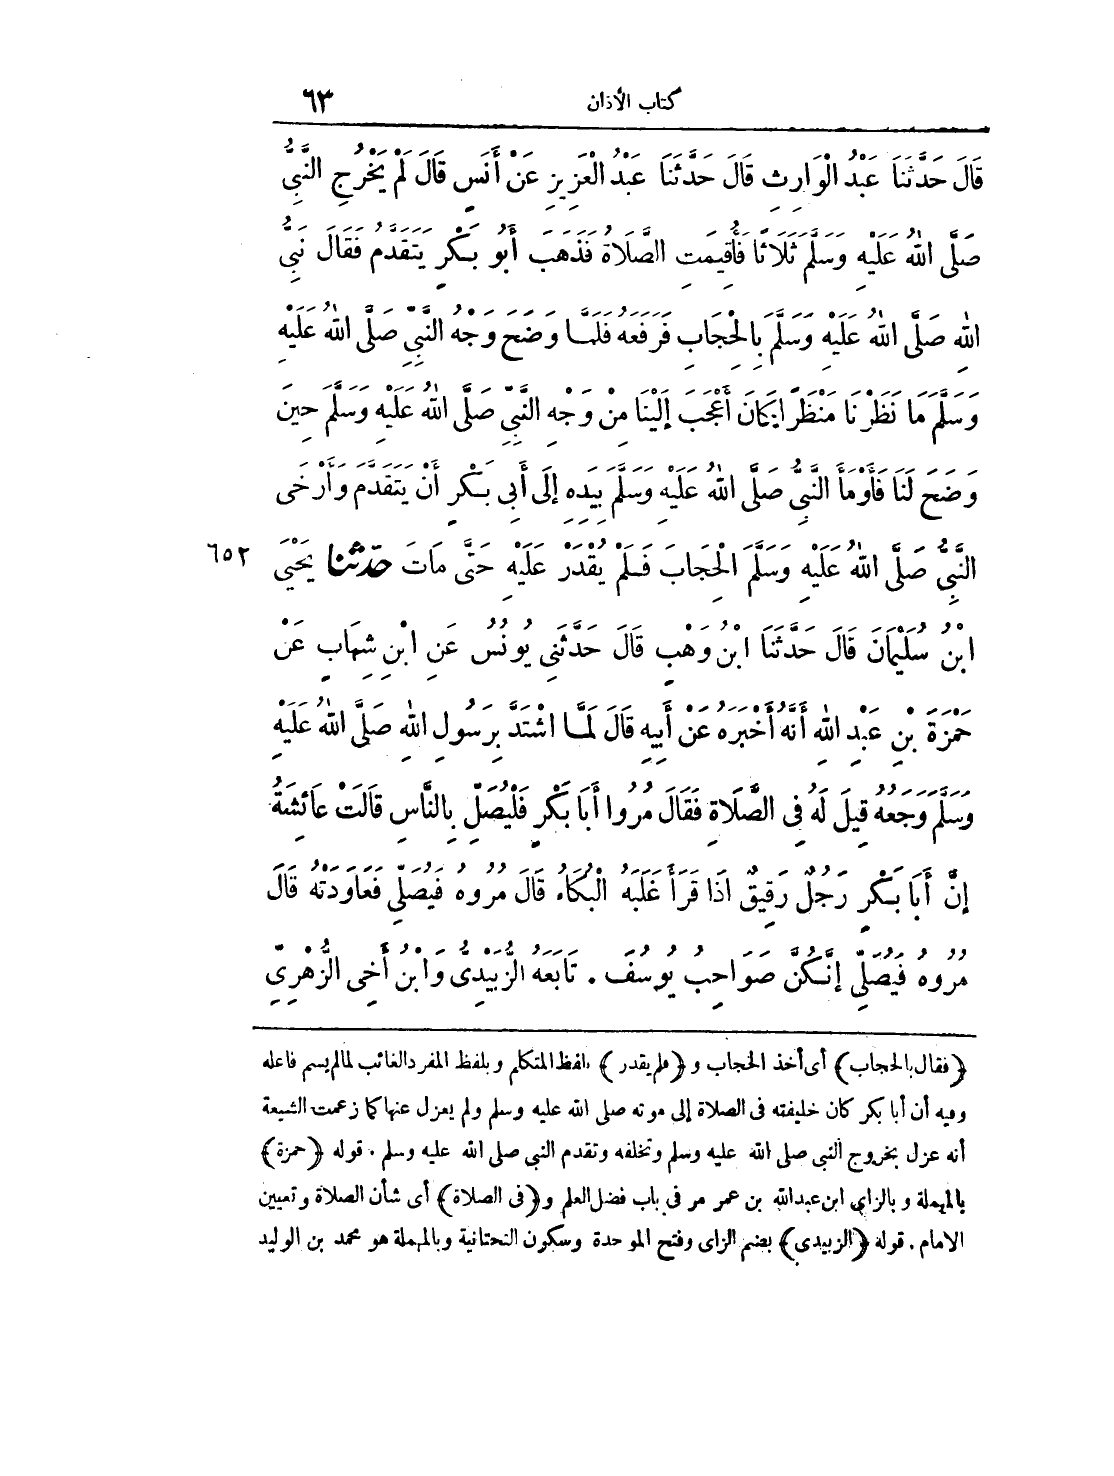 كتاب الأذان ٦٣
قَالَ حَدَّثَنَا عَبْدُ الْوَارِثِ قَالَ حَدَّثَنَا عَبْدُ الْعَزِيزِ عَنْ أَنَسٍ قَالَ لَمْ يَخْرُجِ النَّبِيُّ
صَلَّى اللهُ عَلَيْهِ وَسَلَّمَ ثَلَاثًا فَأُقِيمَتِ الصَّلَاةُ فَذَهَبَ أَبُو بَكْرٍ يَتَقَدَّمُ فَقَالَ نَبِيُّ
اللهِ صَلَّى اللهُ عَلَيْهِ وَسَلَّمَ بِالْحِجَابِ فَرَفَعَهُ فَلَمَّا وَضَحَ وَجْهُ النَّبِيِّ صَلَّى اللهُ عَلَيْهِ
وَسَلَّمَ مَا نَظَرْنَا مَنْظَرًا كَانَ أَعْجَبَ إِلَيْنَا مِنْ وَجْهِ النَّبِيِّ صَلَّى اللهُ عَلَيْهِ وَسَلَّمَ حِينَ
وَضَحَ لَنَا فَأَوْمَأَ النَّبِيُّ صَلَّى اللهُ عَلَيْهِ وَسَلَّمَ بِيَدِهِ إِلَى أَبِي بَكْرٍ أَنْ يَتَقَدَّمَ وَأَرْخَى
النَّبِيُّ صَلَّى اللهُ عَلَيْهِ وَسَلَّمَ الْحِجَابَ فَلَمْ يُقْدَرْ عَلَيْهِ حَتَّى مَاتَ حَدَّثَنَا يَحْيَى ٦٥٢
ابْنُ سُلَيْمَانَ قَالَ حَدَّثَنَا ابْنُ وَهْبٍ قَالَ حَدَّثَنِي يُونُسُ عَنِ ابْنِ شِهَابٍ عَنْ
حَمْزَةَ بْنِ عَبْدِ اللهِ أَنَّهُ أَخْبَرَهُ عَنْ أَبِيهِ قَالَ لَمَّا اشْتَدَّ بِرَسُولِ اللهِ صَلَّى اللهُ عَلَيْهِ
وَسَلَّمَ وَجَعُهُ قِيلَ لَهُ فِي الصَّلَاةِ فَقَالَ مُرُوا أَبَا بَكْرٍ فَلْيُصَلِّ بِالنَّاسِ قَالَتْ عَائِشَةُ
إِنَّ أَبَا بَكْرٍ رَجُلٌ رَقِيقٌ اذَا قَرَأَ غَلَبَهُ الْبُكَاءُ قَالَ مُرُوهُ فَيُصَلِّي فَعَاوَدَتْهُ قَالَ
مُرُوهُ فَيُصَلِّي إِنَّكُنَّ صَوَاحِبُ يُوسُفَ . تَابَعَهُ الزُّبَيْدِيُّ وَابْنُ أَخِي الزُّهْرِيِّ
﴿فقال بالحجاب﴾ أى أخذ الحجاب و﴿فلم يقدر﴾ بلفظ المتكلم وبلفظ المفرد الغائب لما لم يسم فاعله
وفيه أن أبا بكر كان خليفته فى الصلاة إلى موته صلى الله عليه وسلم ولم يعزل عنها كما زعمت الشيعة
أنه عزل بخروج النبى صلى الله عليه وسلم وتخلفه وتقدم النبى صلى الله عليه وسلم . قوله ﴿حمزة﴾
بالمهملة وبالزاي ابن عبدالله بن عمر مر فى باب فضل العلم و﴿فى الصلاة﴾ أى شأن الصلاة وتعيين
الامام . قوله ﴿الزبيدى﴾ بضم الزاى وفتح الموحدة وسكون التحتانية وبالمهملة هو محمد بن الوليد